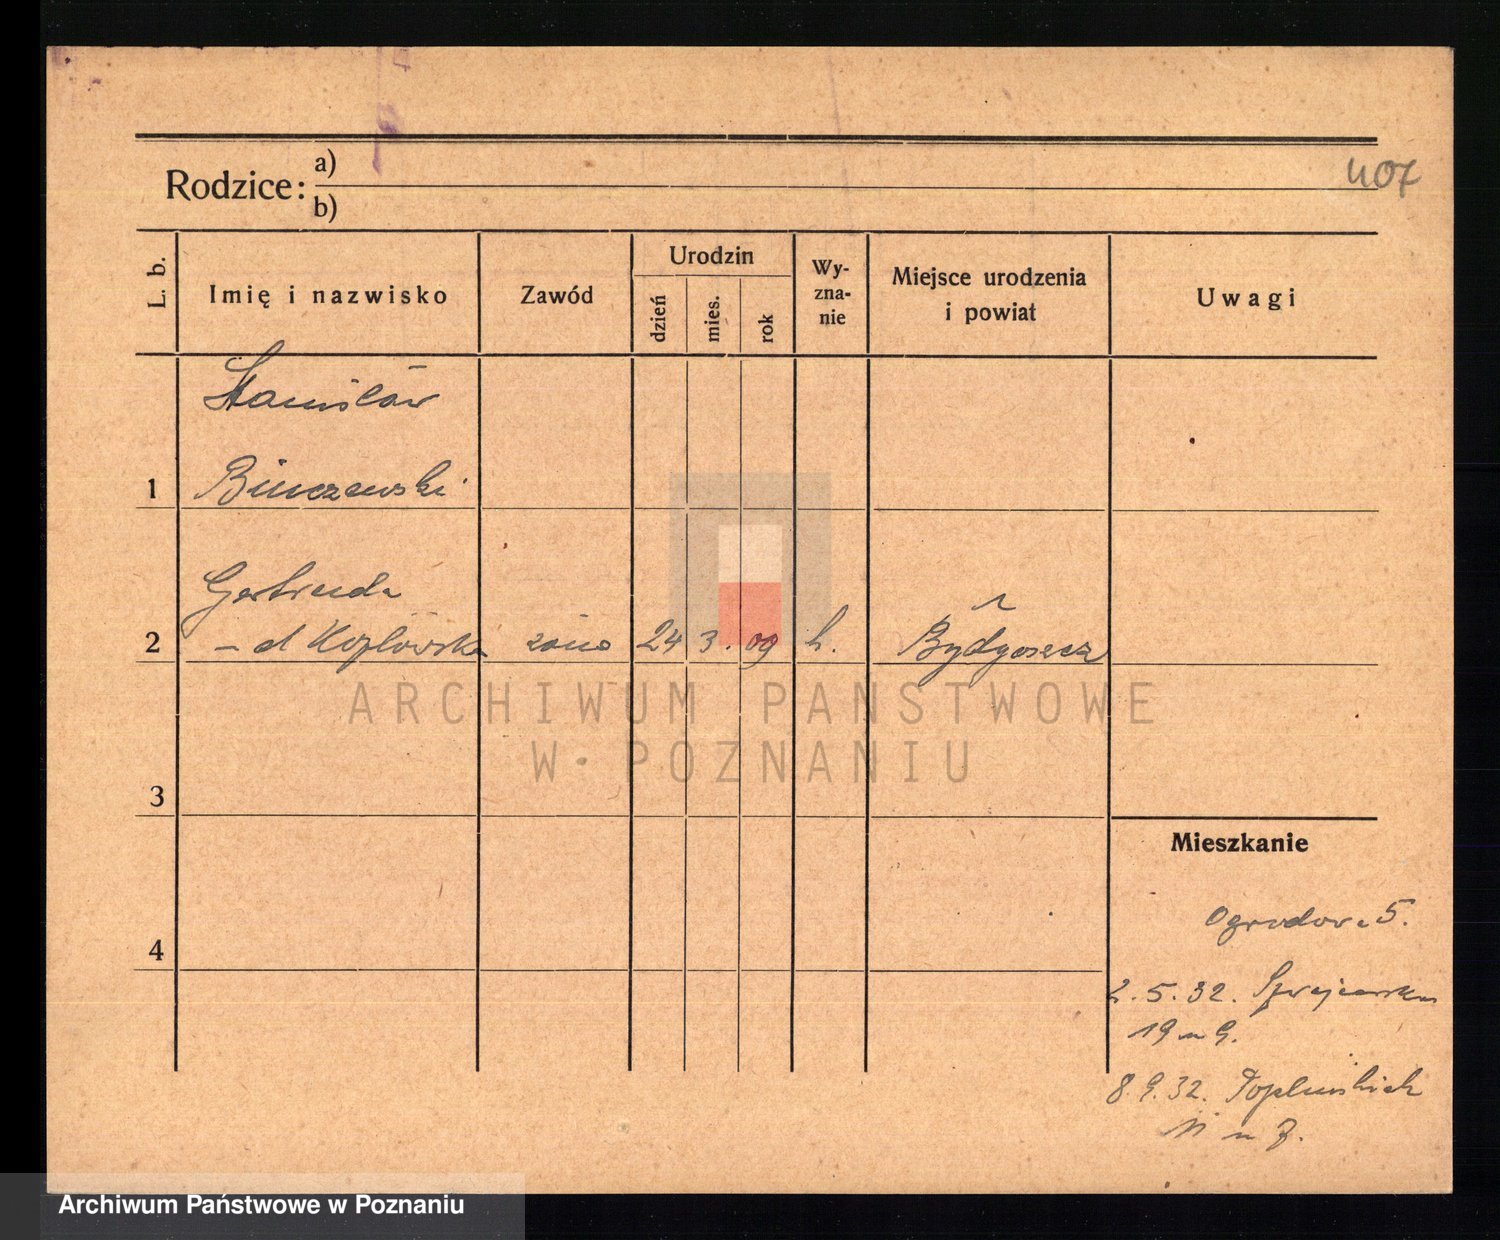 407
Rodzice: a)
b)
L. b.
Imię i nazwisko
Zawód
Urodzin
dzień
mies.
rok
Wy-
zna-
nie
Miejsce urodzenia
i powiat
Uwagi
Stanisław
1 Binczewski
Gertruda
2 - d Kozłowska żona 24 3. 09 k. Bydgoszcz
3
4
Mieszkanie
Ogrodowa 5.
2.5.32. Szwajcarska
19 m 9.
8.9.32. Poplińskich
11 m 7.
ARCHIWUM PAŃSTWOWE
W POZNANIU
Archiwum Państwowe w Poznaniu